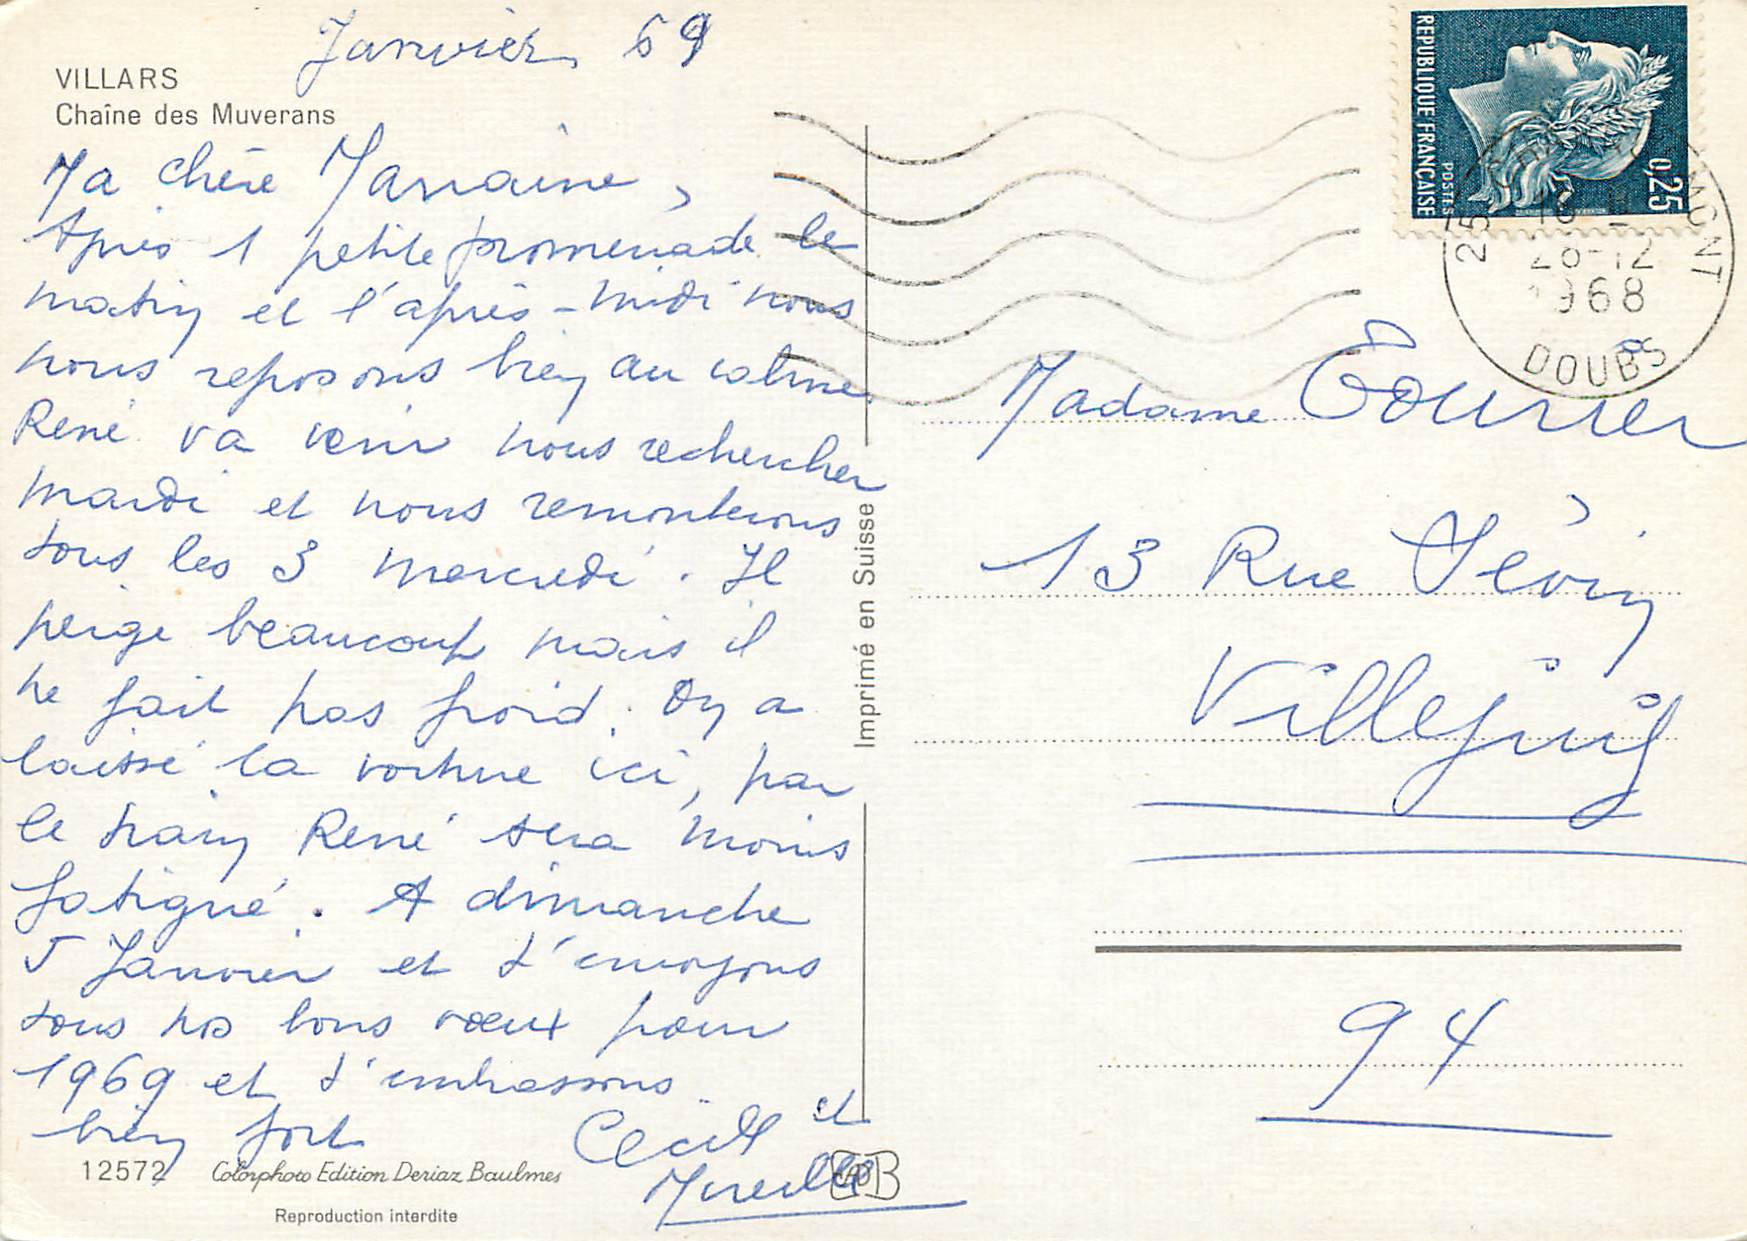 Janvier 69
VILLARS
Chaîne des Muverans
Ma chère Marraine,
Après 1 petite promenade le
matin et l'après-midi nous
nous reposons bien au calme.
René va venir nous rechercher
mardi et nous remonterons
tous les 3 mercredi. Il
neige beaucoup mais il
ne fait pas froid. On a
laissé la voiture ici, par
le train René sera moins
fatigué. A dimanche
5 Janvier et t'envoyons
tous nos bons vœux pour
1969 et t'embrassons
bien fort Cécile et
Mireille
12572 Colorphoto Edition Deriaz Baulmes
Reproduction interdite
Imprimé en Suisse
REPUBLIQUE FRANÇAISE
POSTES
0,25
25
MONT
-12
1968
DOUBS
Madame
13 Rue Sévin
Villejuif
94